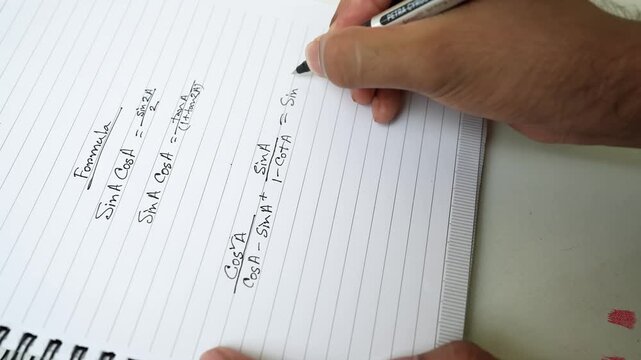 Formula
SinA CosA = sin2A/2
SinA CosA = tanA/(1+tan2A)
Cos²A/CosA - SinA + SinA/1-CotA = Sin